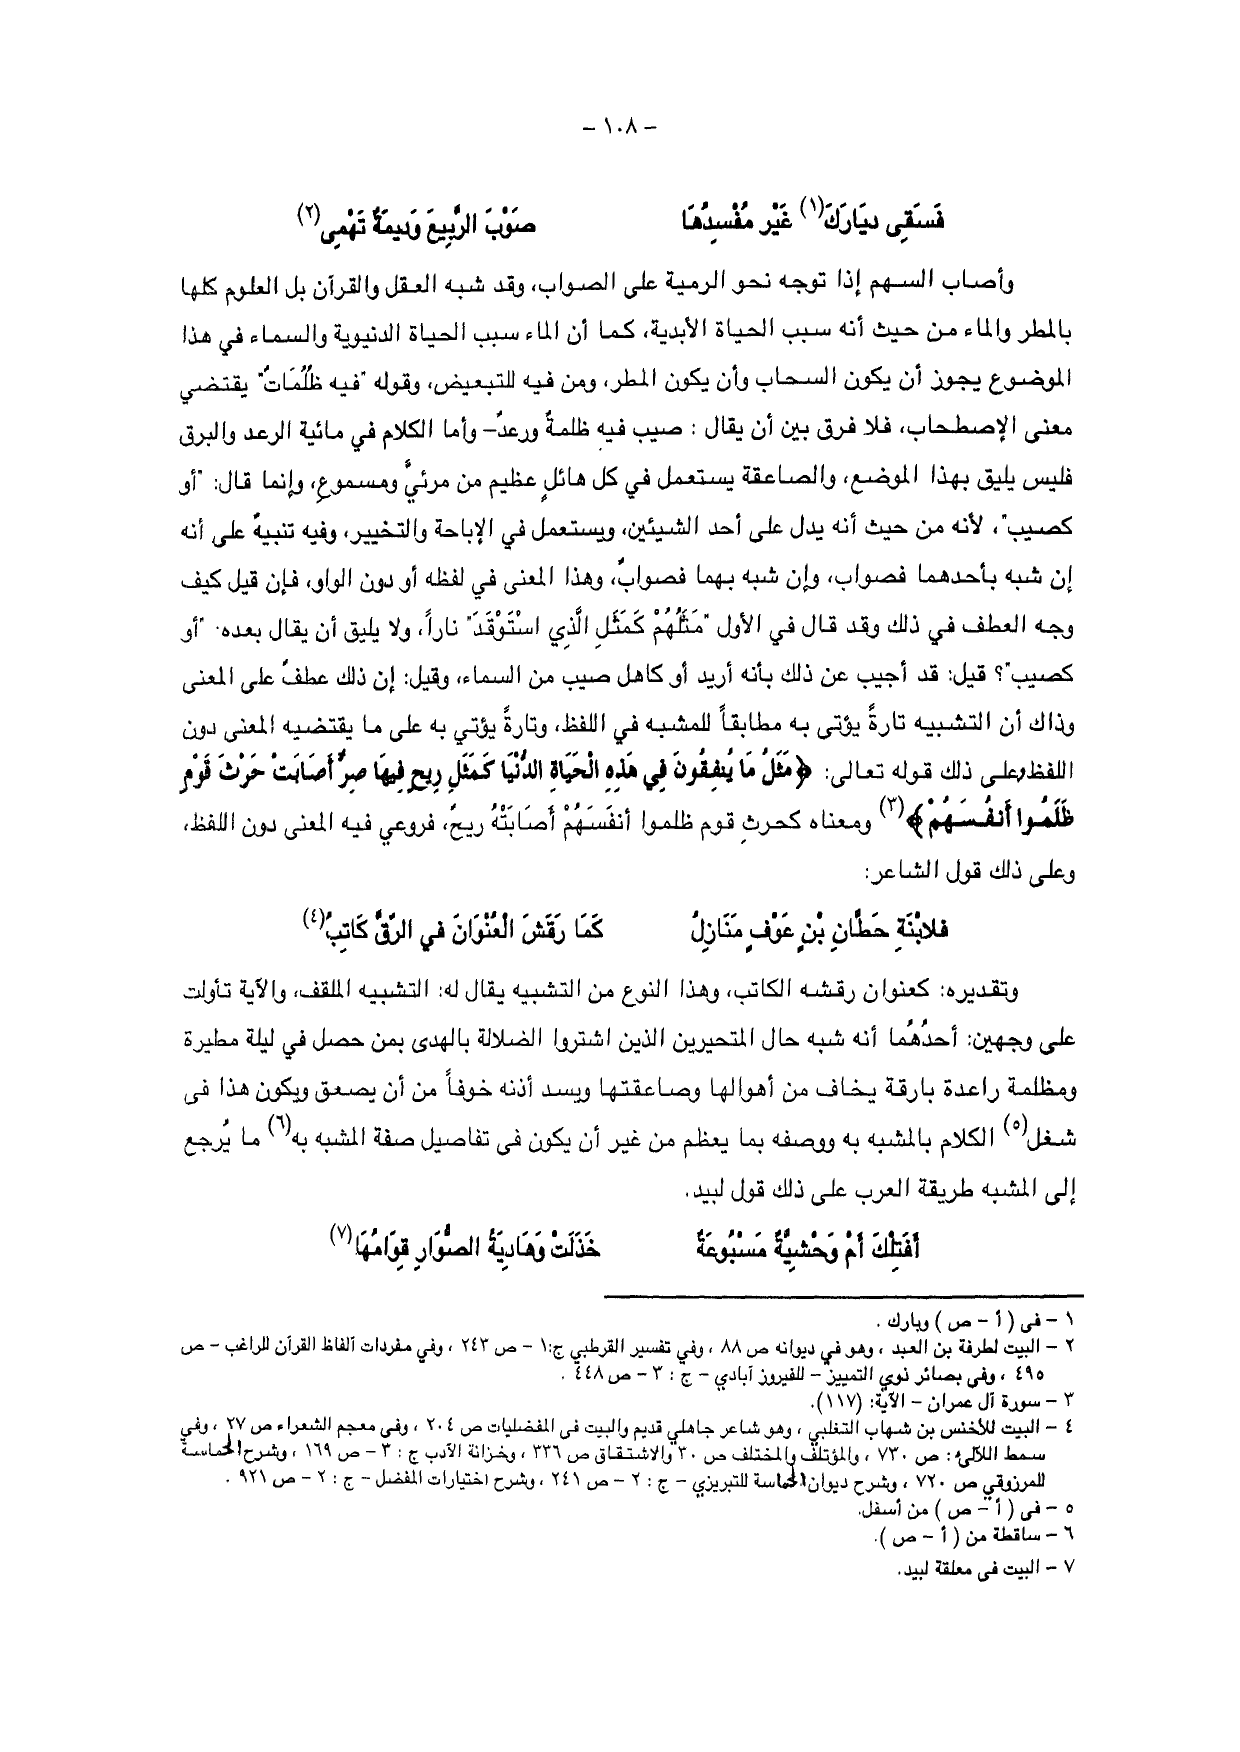 - ١٠٨ -
فَسَقَى دیَارَكَ(١) غَيْر مُفْسِدُهَا صَوْبَ الرَّبِيعَ وَدِيمَةٌ تَهْمِى(٢)
وأصاب السهم إذا توجه نحو الرمية على الصواب، وقد شبه العقل والقرآن بل العلوم كلها
بالمطر والماء من حيث أنه سبب الحياة الأبدية، كما أن الماء سبب الحياة الدنيوية والسماء في هذا
الموضوع يجوز أن يكون السحاب وأن يكون المطر، ومن فيه للتبعيض، وقوله "فيه ظُلُمَاتٌ" يقتضي
معنى الإصطحاب، فلا فرق بين أن يقال : صيب فيه ظلمةٌ ورعدٌ- وأما الكلام في مائية الرعد والبرق
فليس يليق بهذا الموضع، والصاعقة يستعمل في كل هائلٍ عظيم من مرئيٍّ ومسموعٍ، وإنما قال: "أو
كصيب"، لأنه من حيث أنه يدل على أحد الشيئين، ويستعمل في الإباحة والتخيير، وفيه تنبيهٌ على أنه
إن شبه بأحدهما فصواب، وإن شبه بهما فصوابٌ، وهذا المعنى في لفظه أو دون الواو، فإن قيل كيف
وجه العطف في ذلك وقد قال في الأول "مَثَلُهُمْ كَمَثَلِ الَّذِي اسْتَوْقَدَ" ناراً، ولا يليق أن يقال بعده· "أو
كصيب"؟ قيل: قد أجيب عن ذلك بأنه أريد أو كاهل صيب من السماء، وقيل: إن ذلك عطفٌ على المعنى
وذاك أن التشبيه تارةً يؤتي به مطابقاً للمشبه في اللفظ، وتارةً يؤتي به على ما يقتضيه المعنى دون
اللفظ، وعلى ذلك قوله تعالى: ﴿مَثَلُ مَا يُنفِقُونَ فِي هَذِهِ الْحَيَاةِ الدُّنْيَا كَمَثَلِ رِيحٍ فِيهَا صِرٌّ أَصَابَتْ حَرْثَ قَوْمٍ
ظَلَمُوا أَنفُسَهُمْ﴾(٣) ومعناه كحرثِ قوم ظلموا أنفَسَهُمْ أصَابَتْهُ ريحٌ، فروعي فيه المعنى دون اللفظ،
وعلى ذلك قول الشاعر:
فلابْنَةِ حَطَّانِ بْنِ عَوْفٍ مَنَازِلُ كَمَا رَقَشَ الْعُنْوَانَ في الرَّقِّ كَاتِبُ(٤)
وتقديره: كعنوان رقشه الكاتب، وهذا النوع من التشبيه يقال له: التشبيه الملقف، والآية تأولت
على وجهين: أحدُهُما أنه شبه حال المتحيرين الذين اشتروا الضلالة بالهدى بمن حصل في ليلة مطيرة
ومظلمة راعدة بارقة يخاف من أهوالها وصاعقتها ويسد أذنه خوفاً من أن يصعق ويكون هذا فى
شغل(٥) الكلام بالمشبه به ووصفه بما يعظم من غير أن يكون فى تفاصيل صفة المشبه به(٦) ما يُرجع
إلى المشبه طريقة العرب على ذلك قول لبيد.
أفَتِلْكَ أمْ وَحْشِيَّةٌ مَسْبُوعَةٌ خَذَلَتْ وَهَادِيَةُ الصُّوَارِ قِوَامُهَا(٧)
١ - فى ( أ - ص ) وبارك .
٢ - البيت لطرفة بن العبد ، وهو في ديوانه ص ٨٨ ، وفي تفسير القرطبي ج:١ - ص ٢٤٣ ، وفي مفردات ألفاظ القرآن للراغب - ص
٤٩٥ ، وفى بصائر نوي التمييز - للفيروز آبادي - ج : ٣ - ص ٤٤٨ .
٣ - سورة آل عمران - الآية: (١١٧).
٤ - البيت للأخنس بن شهاب التغلبي ، وهو شاعر جاهلي قديم والبيت فى المفضليات ص ٢٠٤ ، وفى معجم الشعراء ص ٢٧ ، وفي
سمط اللآلئ: ص ٧٣٠ ، والمؤتلف والمختلف ص ٣٠ والاشتقاق ص ٣٣٦ ، وخزانة الأدب ج : ٣ - ص ١٦٩ ، وشرح الحماسة
للمرزوقي ص ٧٢٠ ، وشرح ديوان الحماسة للتبريزي - ج : ٢ - ص ٢٤١ ، وشرح اختيارات المفضل - ج : ٢ - ص ٩٢١ .
٥ - فى ( أ - ص ) من أسفل.
٦ - ساقطة من ( أ - ص ).
٧ - البيت فى معلقة لبيد.